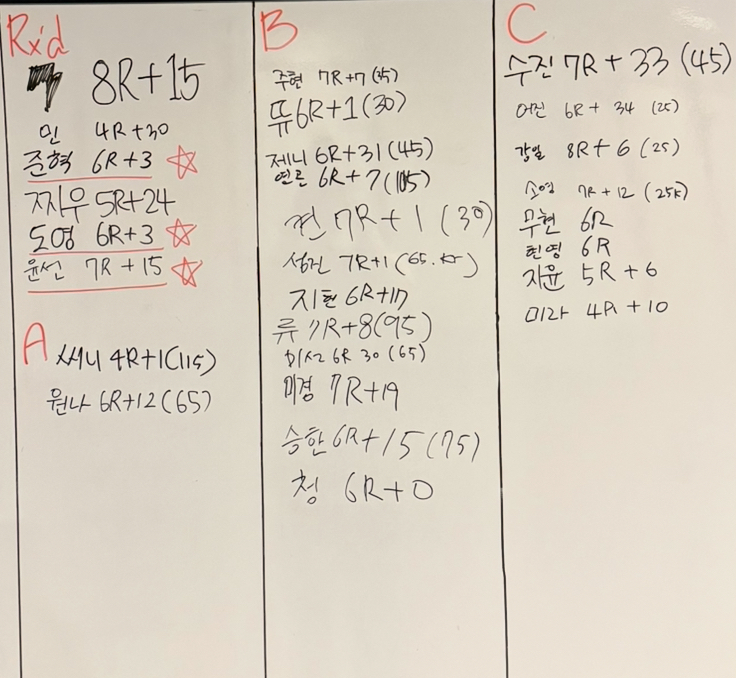 Rx'd
8R+15
민 4R+30
준혁 6R+3 ☆
찌우 5R+24
도영 6R+3 ☆
윤선 7R+15 ☆
A
써니 4R+1(115)
원나 6R+12(65)
B
주현 7R+7
뜌 6R+1(30)
제니 6R+31(45)
연른 6R+7(105)
젼 7R+1(30)
성진 7R+1
지현 6R+17
류 7R+8(95)
미선 6R 30(65)
미경 7R+19
승한 6R+15(75)
청 6R+0
C
수진 7R+33(45)
어진 6R+34(25)
강일 8R+6(25)
소영 7R+12(25k)
무현 6R
현영 6R
지윤 5R+6
미라 4R+10